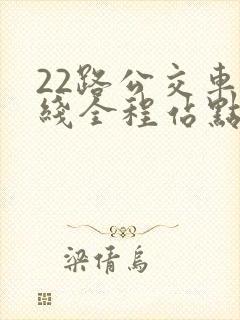 22路公交車
綫全程佔點
梁倩烏